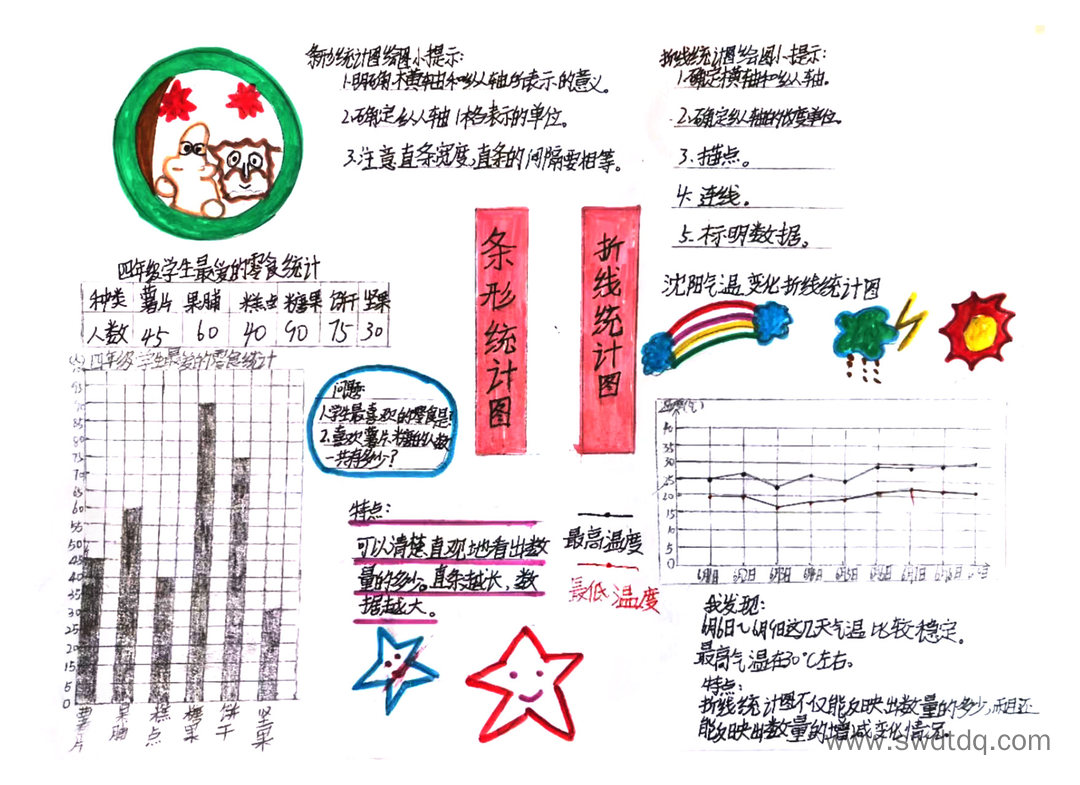 条形统计图绘图小提示:
1.明确横轴和纵轴所表示的意义。
2.确定纵轴1格表示的单位。
3.注意直条宽度,直条的间隔要相等。
折线统计图绘图小提示:
1.确定横轴和纵轴。
2.确定纵轴的
3.描点。
4.连线。
5.标明数据。
条形统计图
折线统计图
四年级学生最爱的零食统计
种类 薯片 果脯 糕点 糖果 饼干 坚果
人数 45 60 40 90 75 30
四年级学生最爱的零食统计
95
90
85
80
75
70
65
60
55
50
45
40
35
30
25
20
15
10
5
0
薯片 果脯 糕点 糖果 饼干 坚果
问题:
1.学生最喜欢的零食是?
2.喜欢薯片、的人数
一共有多少?
特点:
可以清楚直观地看出数
量的多少。直条越长,数
据越大。
最高温度
最低温度
沈阳气温变化折线统计图
温度(℃)
40
35
30
25
20
15
10
5
0
6月1日 6月2日 6月3日 6月4日 6月5日 6月6日 6月7日 6月8日
我发现:
6月6日~6月9日这几天气温比较稳定。
最高气温在30℃左右。
特点:
折线统计图不仅能反映出数量的多少,而且还
能反映出数量的增减变化情况。
www.swdtdq.com